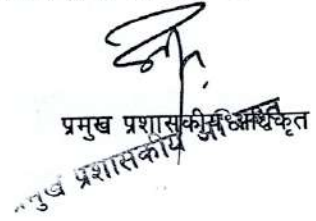 प्रमुख प्रशासकीय अधिकृत
प्रमुख प्रशासकीय